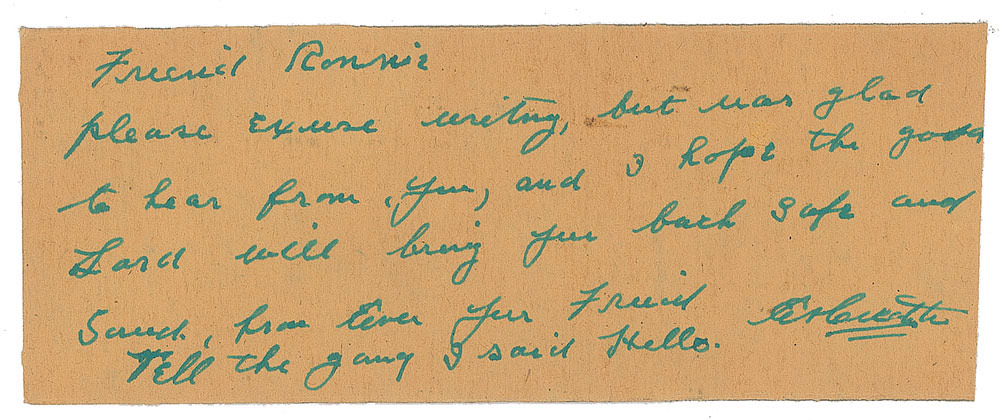 Friend Ronnie
please Excuse writng, but was glad
to hear from you, and I hope the good
Lord will bring you back Safe and
Sound, from Ever your Friend
Tell the gang I said Hello.